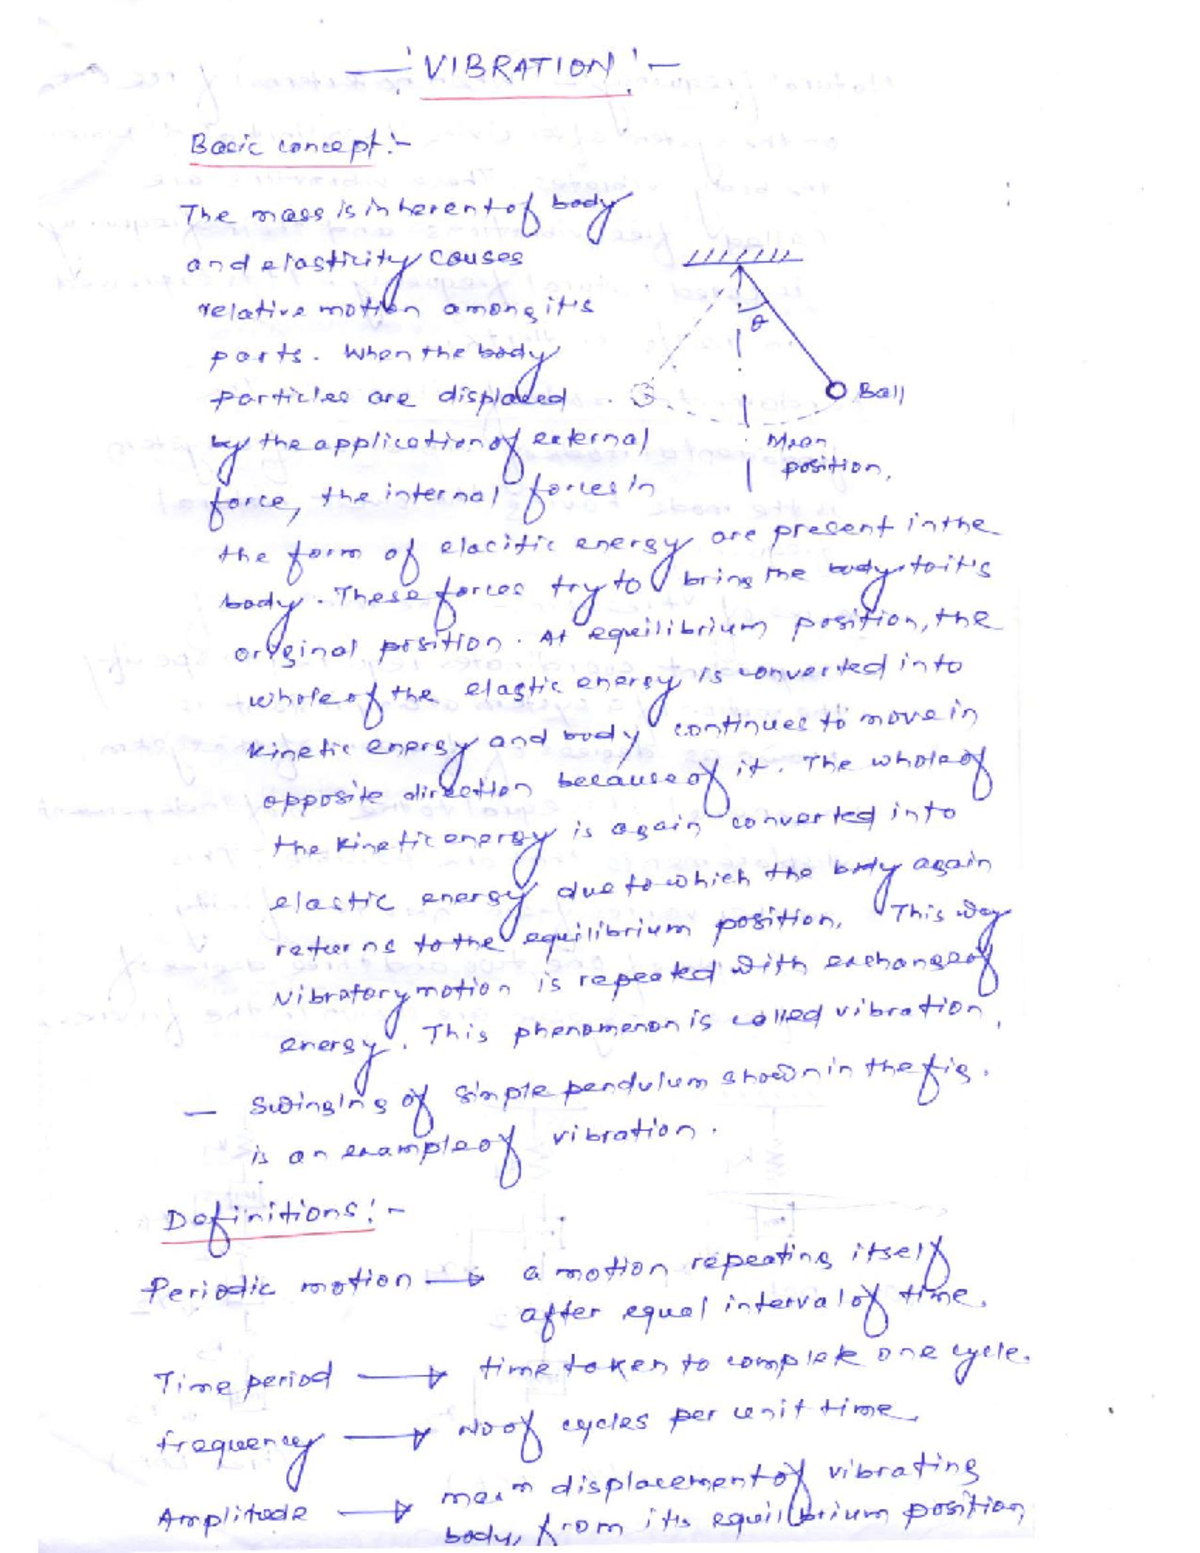 —:'VIBRATION':—
Basic concept:-
The mass is inherent of body
and elasticity causes
relative motion among it's
parts. When the body
particles are displaced
by the application of external
force, the internal forces in
the form of elacitic energy are present in the
body. These forces try to bring the body to it's
original position. At equilibrium position, the
whole of the elastic energy is converted into
kinetic energy and body continues to move in
opposite direction because of it. The whole of
the kinetic energy is again converted into
elastic energy due to which the body again
returns to the equilibrium position. This way
vibratory motion is repeated with exchange of
energy. This phenomenon is called vibration.
— Swinging of simple pendulum shown in the fig.
is an example of vibration.
θ
Ball
Mean
position.
Definitions:-
Periodic motion → a motion repeating itself
after equal interval of time.
Time period → time taken to complete one cycle.
frequency → No of cycles per unit time.
Amplitude → maxm displacement of vibrating
body, from its equilibrium position